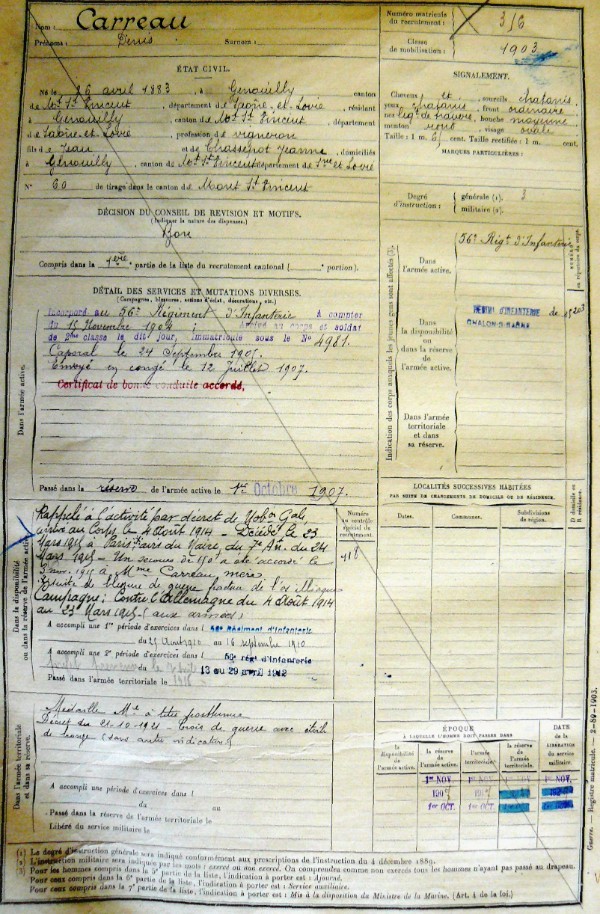 Nom : Carreau
Prénoms : Denis Surnom :
Numéro matricule du recrutement : 316
Classe de mobilisation : 1903
ÉTAT CIVIL.
Né le 26 avril 1883, à Genouilly, canton
de Mt St Vincent, département de Saône-et-Loire, résidant
à Genouilly, canton de Mt St Vincent, département
de Saône et Loire, profession de vigneron
fils de Jean et de Chassenot Jeanne, domiciliés
à Genouilly, canton de Mt St Vincent département de Sne et Loire
N° 60 de tirage dans le canton de Mont St Vincent
SIGNALEMENT.
Cheveux et sourcils chatains
yeux chatains, front ordinaire
nez, bouche moyenne
menton rond, visage ovale
Taille : 1 m. 61 cent. Taille rectifiée : 1 m. cent.
MARQUES PARTICULIÈRES :
Degré d'instruction : générale (1). 3
militaire (2).
DÉCISION DU CONSEIL DE REVISION ET MOTIFS.
(Indiquer la nature des dispenses.)
Bon
Compris dans la 1ère partie de la liste du recrutement cantonal ( portion).
DÉTAIL DES SERVICES ET MUTATIONS DIVERSES.
(Campagnes, blessures, actions d'éclat, décorations, etc.)
Dans l'armée active.
Incorporé au 56e Régiment d'Infanterie à compter
du 15 Novembre 1904 ; Arrivé au corps et soldat
de 2ème classe le dit jour, immatriculé sous le N° 4981.
Caporal le 24 Septembre 1905.
Envoyé en congé le 12 Juillet 1907.
Certificat de bonne conduite accordé.
Passé dans la réserve de l'armée active le 1er Octobre 1907.
Indication des corps auxquels les jeunes gens sont affectés (3).
Dans l'armée active.
56e Régt d'Infanterie
Dans la disponibilité ou dans la réserve de l'armée active.
RÉGIMENT D'INFANTERIE de
CHALON-S-SAÔNE
Dans l'armée territoriale et dans sa réserve.
LOCALITÉS SUCCESSIVES HABITÉES
PAR SUITE DE CHANGEMENTS DE DOMICILE OU DE RÉSIDENCE.
Dates. Communes. Subdivisions de région. D domicile ou R résidence.
Dans la disponibilité ou dans la réserve de l'armée active.
Rappelé à l'activité par décret de Mobon Gale
arrivé au Corps le 4 Août 1914 - Décédé le 23
Mars 1915 à Paris du Maire du 7e du 24
Mars 1915 - Un secours de 150f a été accordé le
1915 à Mme Carreau mère
suite de blessure de guerre fracture de l'os iliaque
Campagne : Contre l'Allemagne du 4 Août 1914
au 23 Mars 1915 (aux armées)
Numéro au contrôle spécial du recrutement.
A accompli une 1re période d'exercices dans l 56e Régiment d'Infanterie
du 25 Août 1910 au 16 septembre 1910
A accompli une 2e période d'exercices dans l 56e régt d'Infanterie
du 13 au 29 avril 1912
Passé dans l'armée territoriale le
Dans l'armée territoriale et dans sa réserve.
Médaille Mre à titre posthume
Décret du 21-10-1921 - Croix de guerre avec étoile
de bronze (sans autre indication)
A accompli une période d'exercices dans l
du au
Passé dans la réserve de l'armée territoriale le
Libéré du service militaire le
ÉPOQUE
A LAQUELLE L'HOMME DOIT PASSER DANS
DATE de la LIBÉRATION du service militaire.
la disponibilité de l'armée active. la réserve de l'armée active. l'armée territoriale. la réserve de l'armée territoriale.
1er NOV. 1er NOV. 1er NOV. 1er NOV.
1907
1er OCT. 1er OCT.
Guerre. — Registre matricule. — 2-89-1903.
(1) Le degré d'instruction générale sera indiqué conformément aux prescriptions de l'instruction du 4 décembre 1889.
(2) L'instruction militaire sera indiquée par les mots : exercé ou non exercé. On comprendra comme non exercés tous les hommes n'ayant pas passé au drapeau.
(3) Pour les hommes compris dans la 5e partie de la liste, l'indication à porter est : Ajourné.
Pour ceux compris dans la 6e partie de la liste, l'indication à porter est : Service auxiliaire.
Pour ceux compris dans la 7e partie de la liste, l'indication à porter est : Mis à la disposition du Ministre de la Marine. (Art. 4 de la loi.)